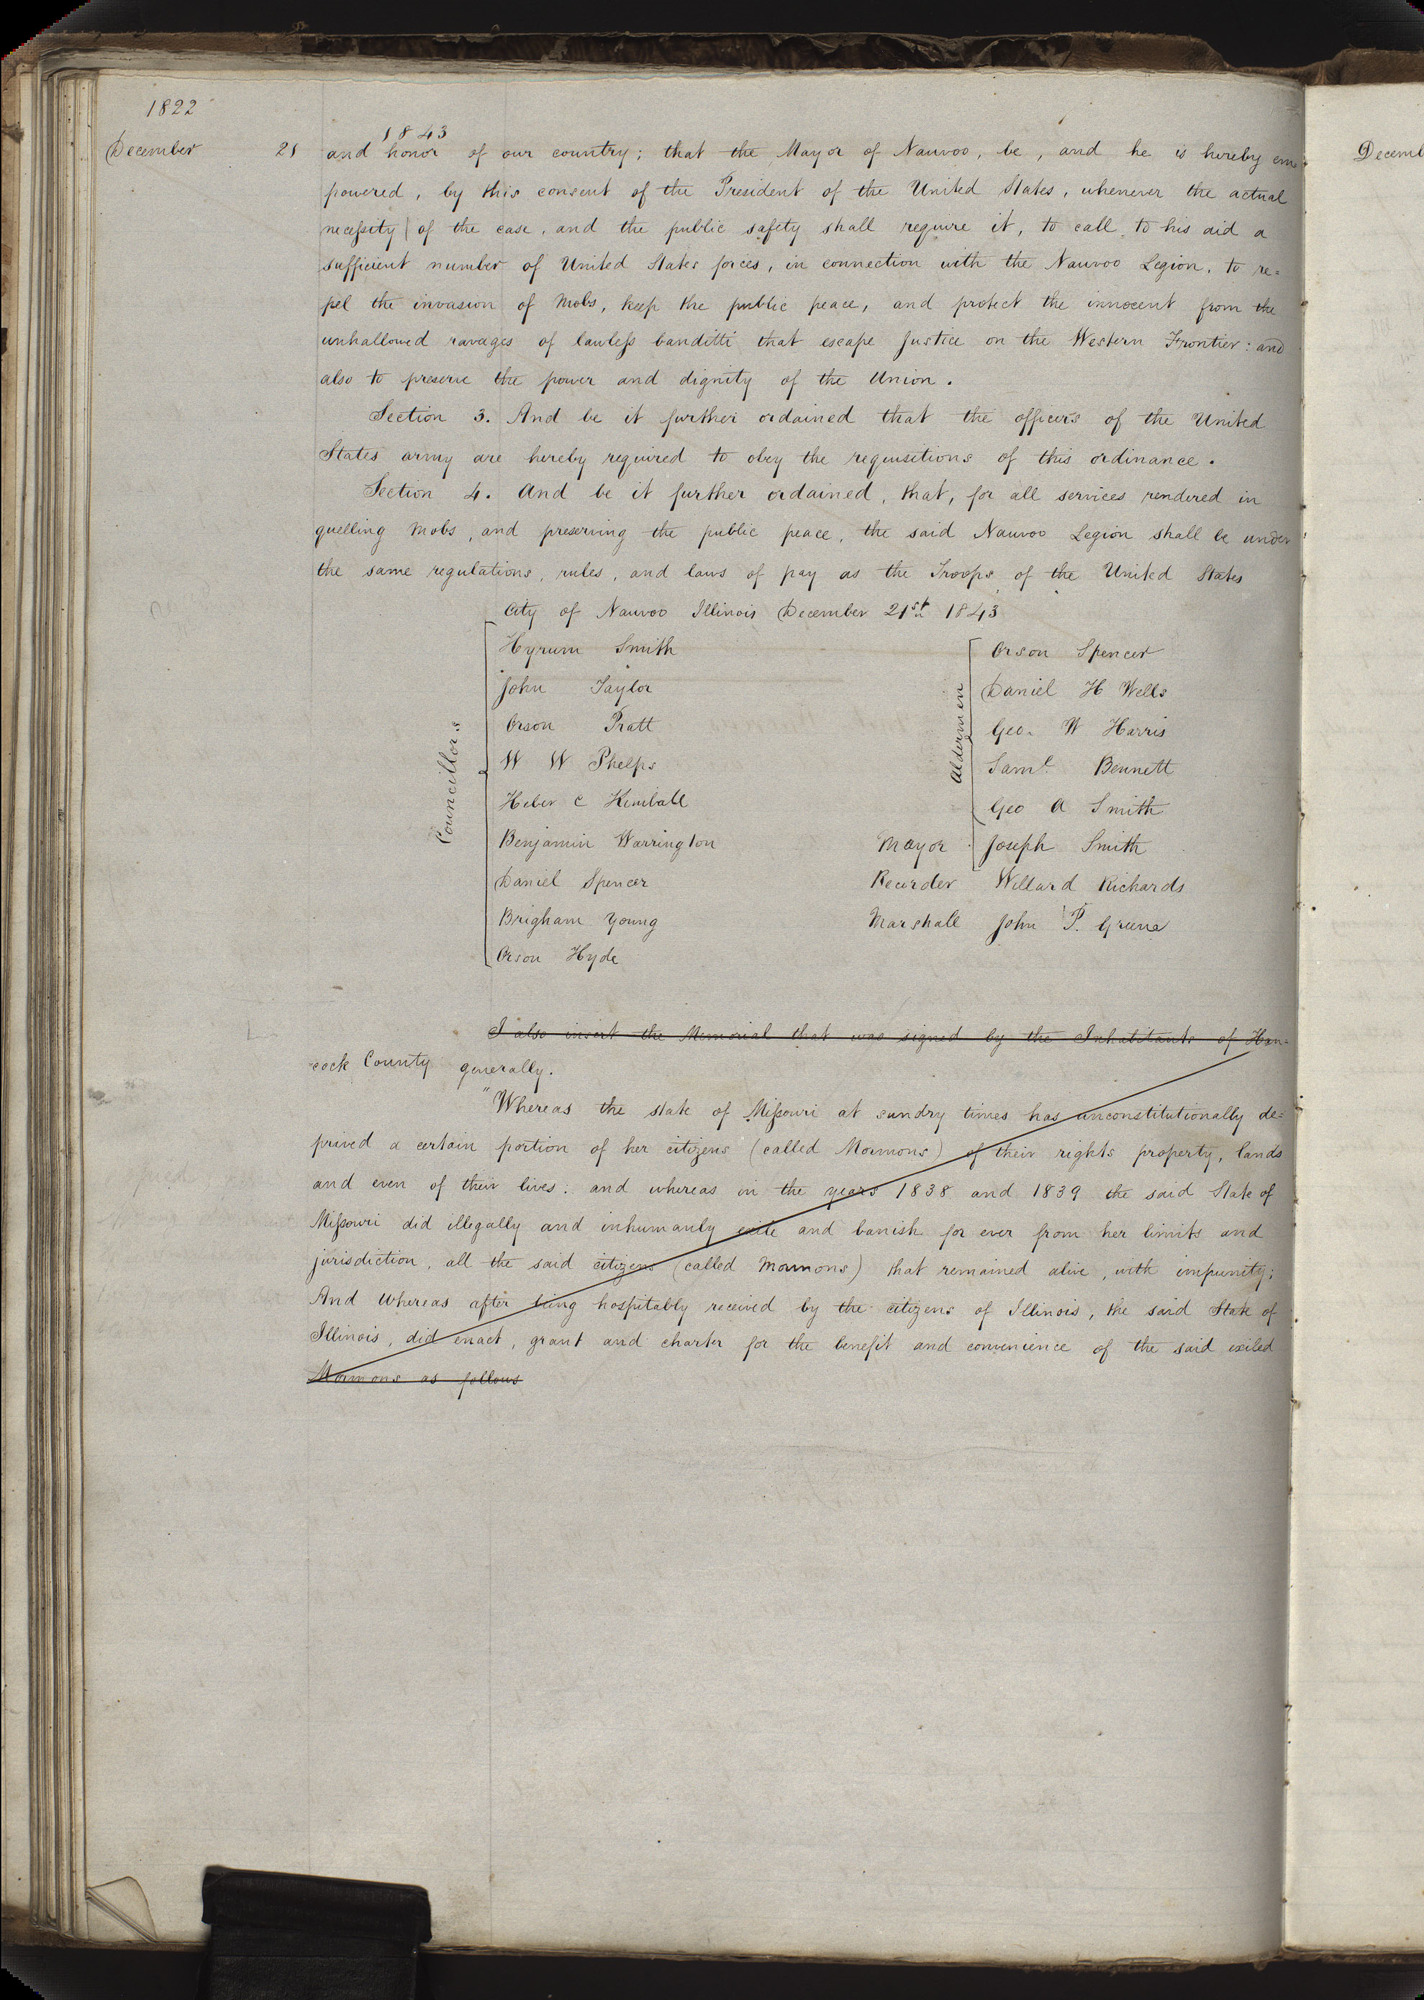 1822
1843
December 21 and honor of our country; that the Mayor of Nauvoo, be, and he is hereby em=
powered, by this consent of the President of the United States, whenever the actual
necessity of the case, and the public safety shall require it, to call to his aid a
sufficient number of United States forces, in connection with the Nauvoo Legion, to re=
pel the invasion of Mobs, keep the public peace, and protect the innocent from the
unhallowed ravages of lawless banditti that escape Justice on the Western Frontier: and
also to preserve the power and dignity of the Union.
Section 3. And be it further ordained that the officers of the United
States army are hereby required to obey the requisitions of this ordinance.
Section 4. And be it further ordained, that, for all services rendered in
quelling Mobs, and preserving the public peace, the said Nauvoo Legion shall be under
the same regulations, rules, and laws of pay as the Troops of the United States
City of Nauvoo Illinois December 21st 1843
Councillors
Hyrum Smith
John Taylor
Orson Pratt
W W Phelps
Heber C Kimball
Benjamin Warrington
Daniel Spencer
Brigham Young
Orson Hyde
Aldermen
Orson Spencer
Daniel H Wells
Geo. W Harris
Saml. Bennett
Geo A Smith
Mayor Joseph Smith
Recorder Willard Richards
Marshall John P. Greene
I also insert the Memorial that was signed by the Inhabitants of Han-
cock County generally.
"Whereas the state of Missouri at sundry times has unconstitutionally de=
prived a certain portion of her citizens (called Mormons) of their rights property, lands
and even of their lives: and whereas in the years 1838 and 1839 the said State of
Missouri did illegally and inhumanly exile and banish for ever from her limits and
jurisdiction, all the said citizens (called Mormons) that remained alive, with impunity;
And Whereas after being hospitably received by the citizens of Illinois, the said State of
Illinois, did enact, grant and charter for the benefit and convenience of the said exiled
Mormons as follows
Decemb